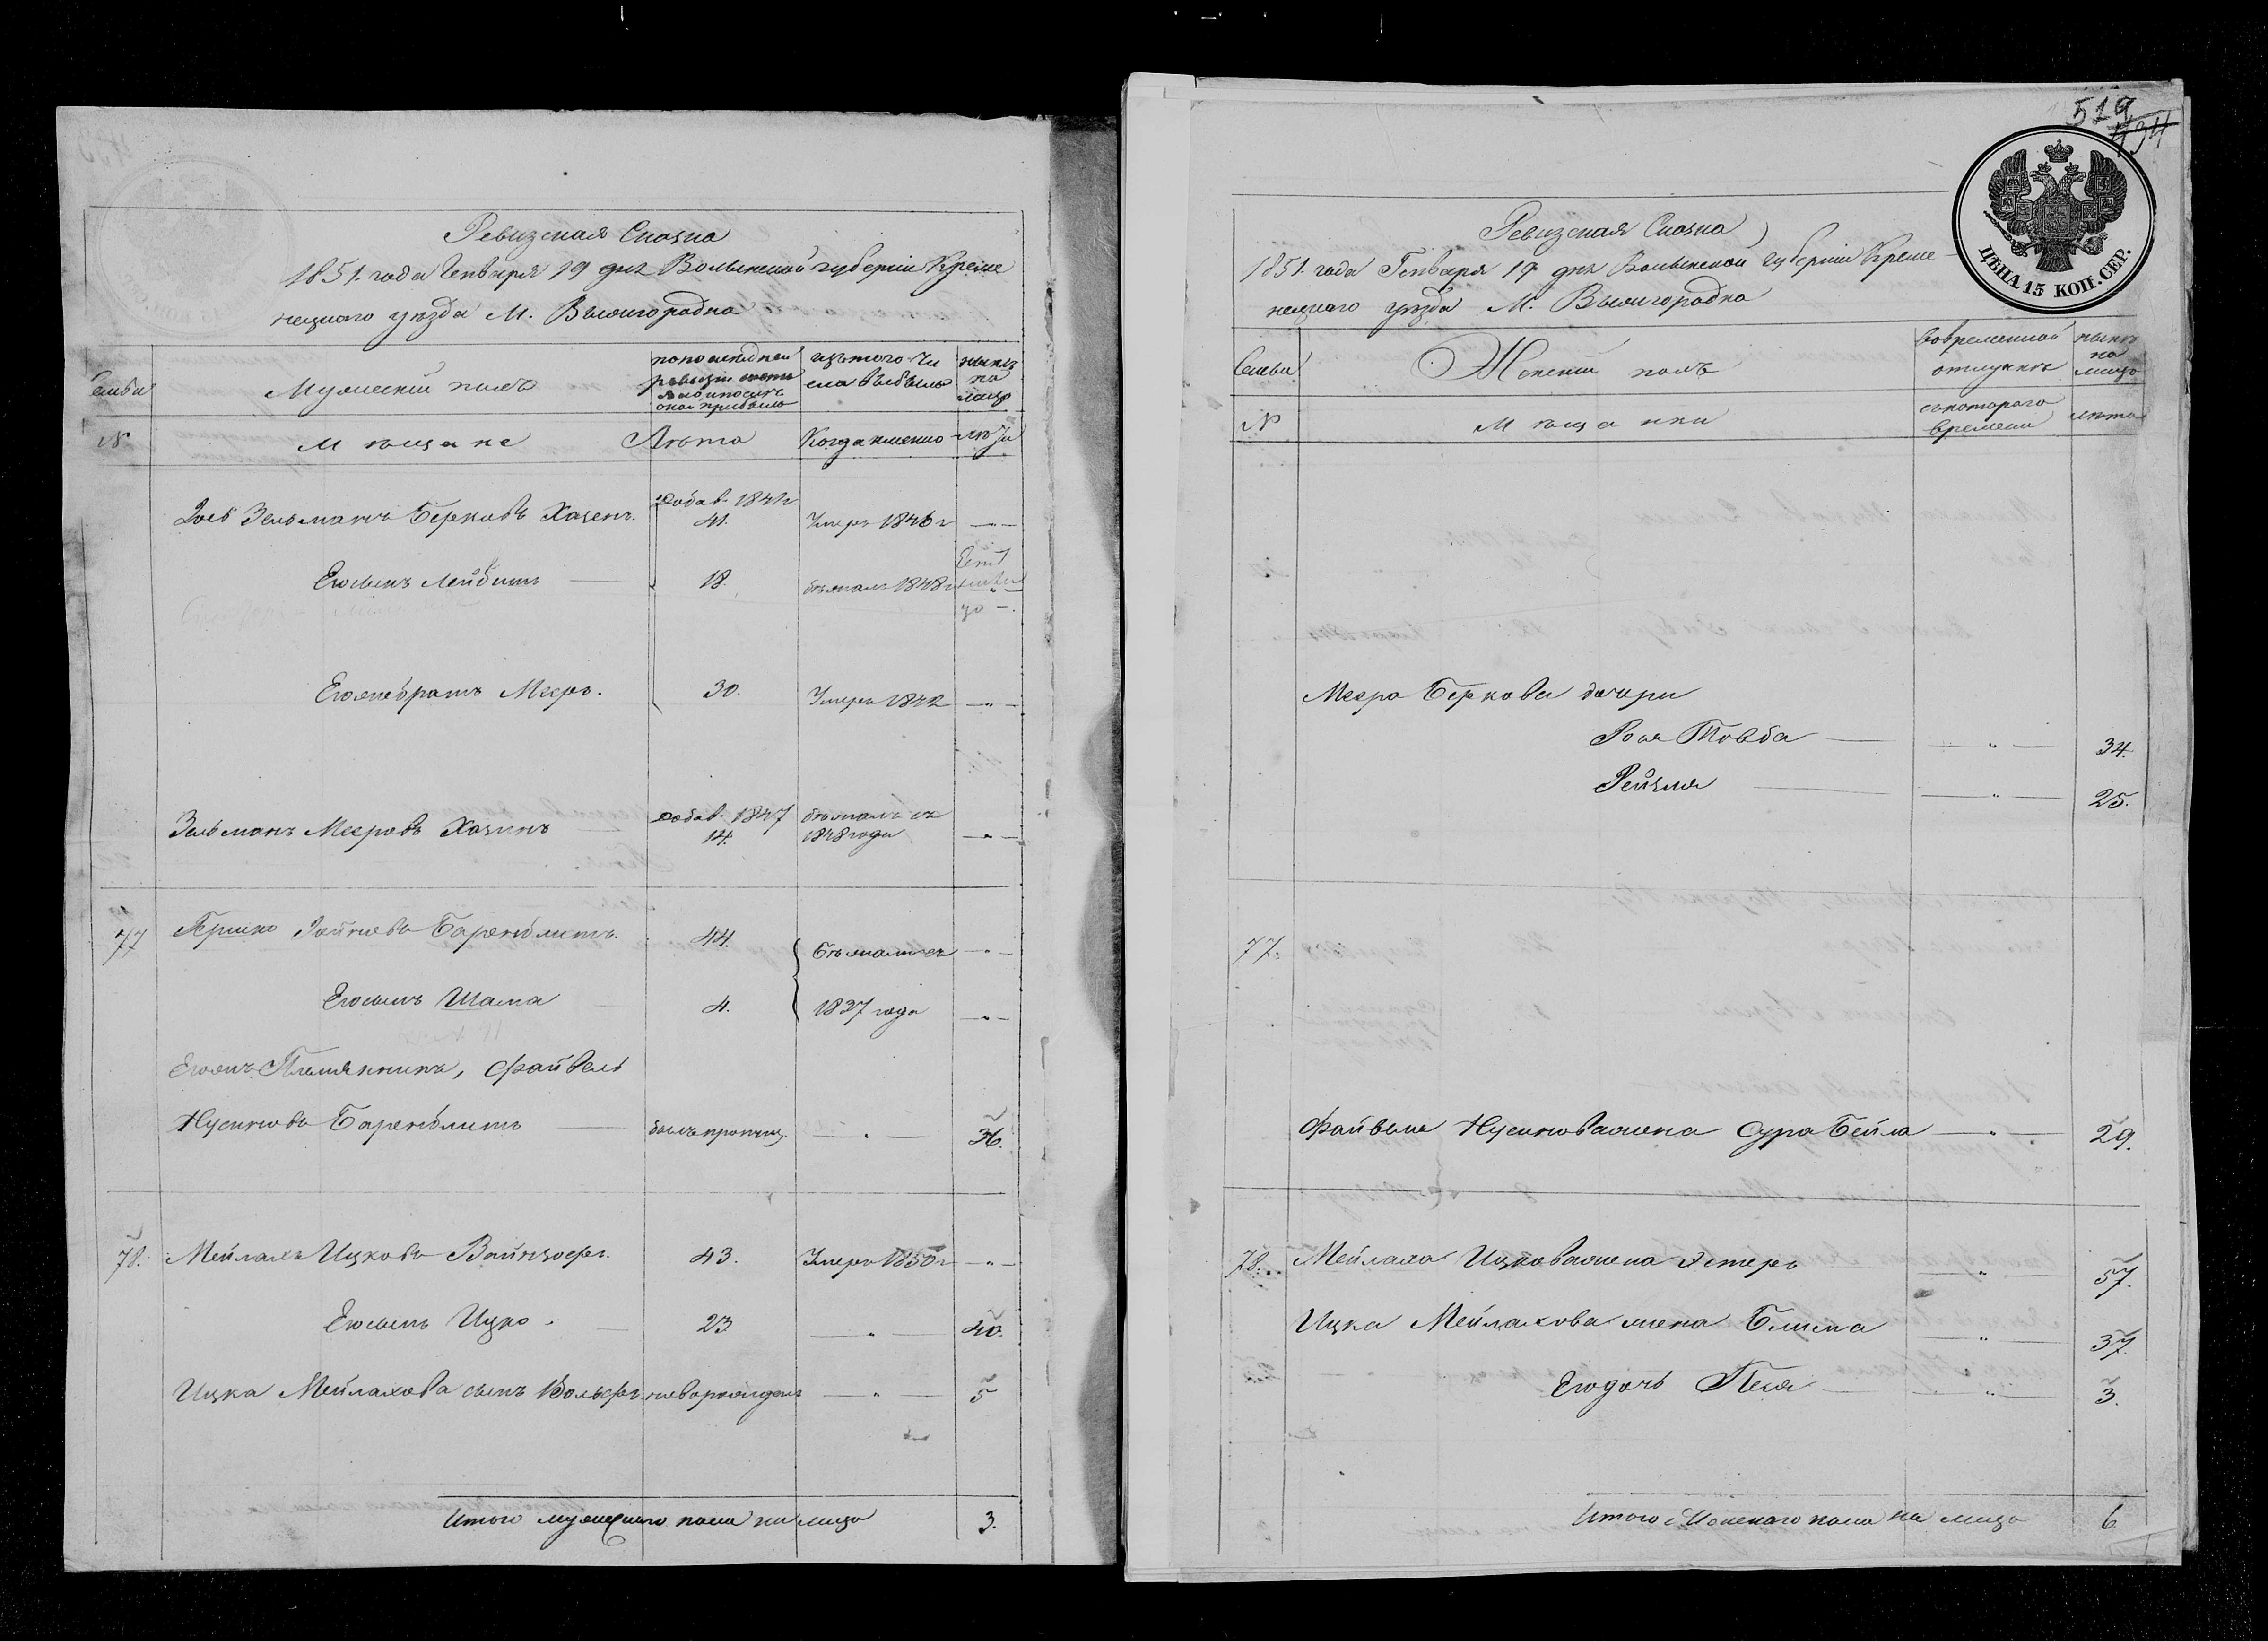 Ревизская Сказка
1851. года Генваря 19 дня Волынской губернии Креме
нецкого уезда М. Вышгородка
Семьи
Мужеский полъ
по последней
ревизии состо
яло и после
оной прибыло
изъ того чи
сла выбыло
ныне
на
лицо
№
Мещане
Лета
Когда именно
лета
Добав. 1842
Зельманъ Берковъ Хазенъ.
41.
Умеръ 1846 г
Его сынъ Лейбишъ
18.
бежалъ 1848 г
Его же братъ Мееръ.
30.
Умеръ 1842
Добав. 1847
Зельманъ Мееровъ Хазинъ
14.
бежалъ съ
1848 года
77
Гершко Баренблитъ.
44.
бежали съ
Его сынъ Шама
4.
1837 года
Егожъ Племянникъ, Файвель
Нусиновъ Баренблитъ
былъ пропущ.
36.
78.
Мейлахъ Ицковъ Вайнцофъ.
43.
Умеръ 1850 г
Его сынъ Ицко.
23
40.
Ицка Мейлахова сынъ Вольфъ
новорожден
5
Итого мужеского пола на лицо
3.
519
434
ЦЕНА 15 КОП. СЕР.
Ревизская Сказка
1851. года Генваря 19 дня Волынской губернии Креме-
нецкого уезда М. Вышгородка
Семьи
Женский полъ
во временной
отлучке
ныне
на
лицо
№
Мещанки
съ котораго
времени
лета
Меера Беркова дочери
Рося Товба
34.
Рейзля
25.
77.
Файвеля Нусинова жена Сура Бейла
29.
78.
Мейлаха Ицкова жена Эстеръ
57.
Ицка Мейлахова жена Блима
37.
Его дочь Песя
3.
Итого Женского пола на лицо
6.